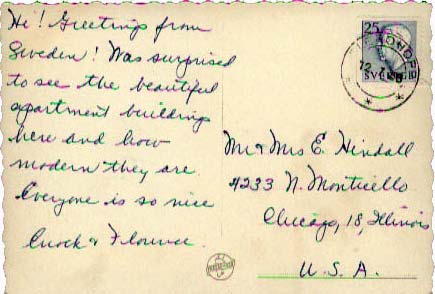 Hi! Greetings from
Sweden! Was surprised
to see the beautiful
apartment buildings
here and how
modern they are.
Everyone is so nice
Enock & Florence.
25
SVERIGE
Mr & Mrs E. Hindall
4233 N. Monticello
Chicago, 18, Illinois
U. S. A.